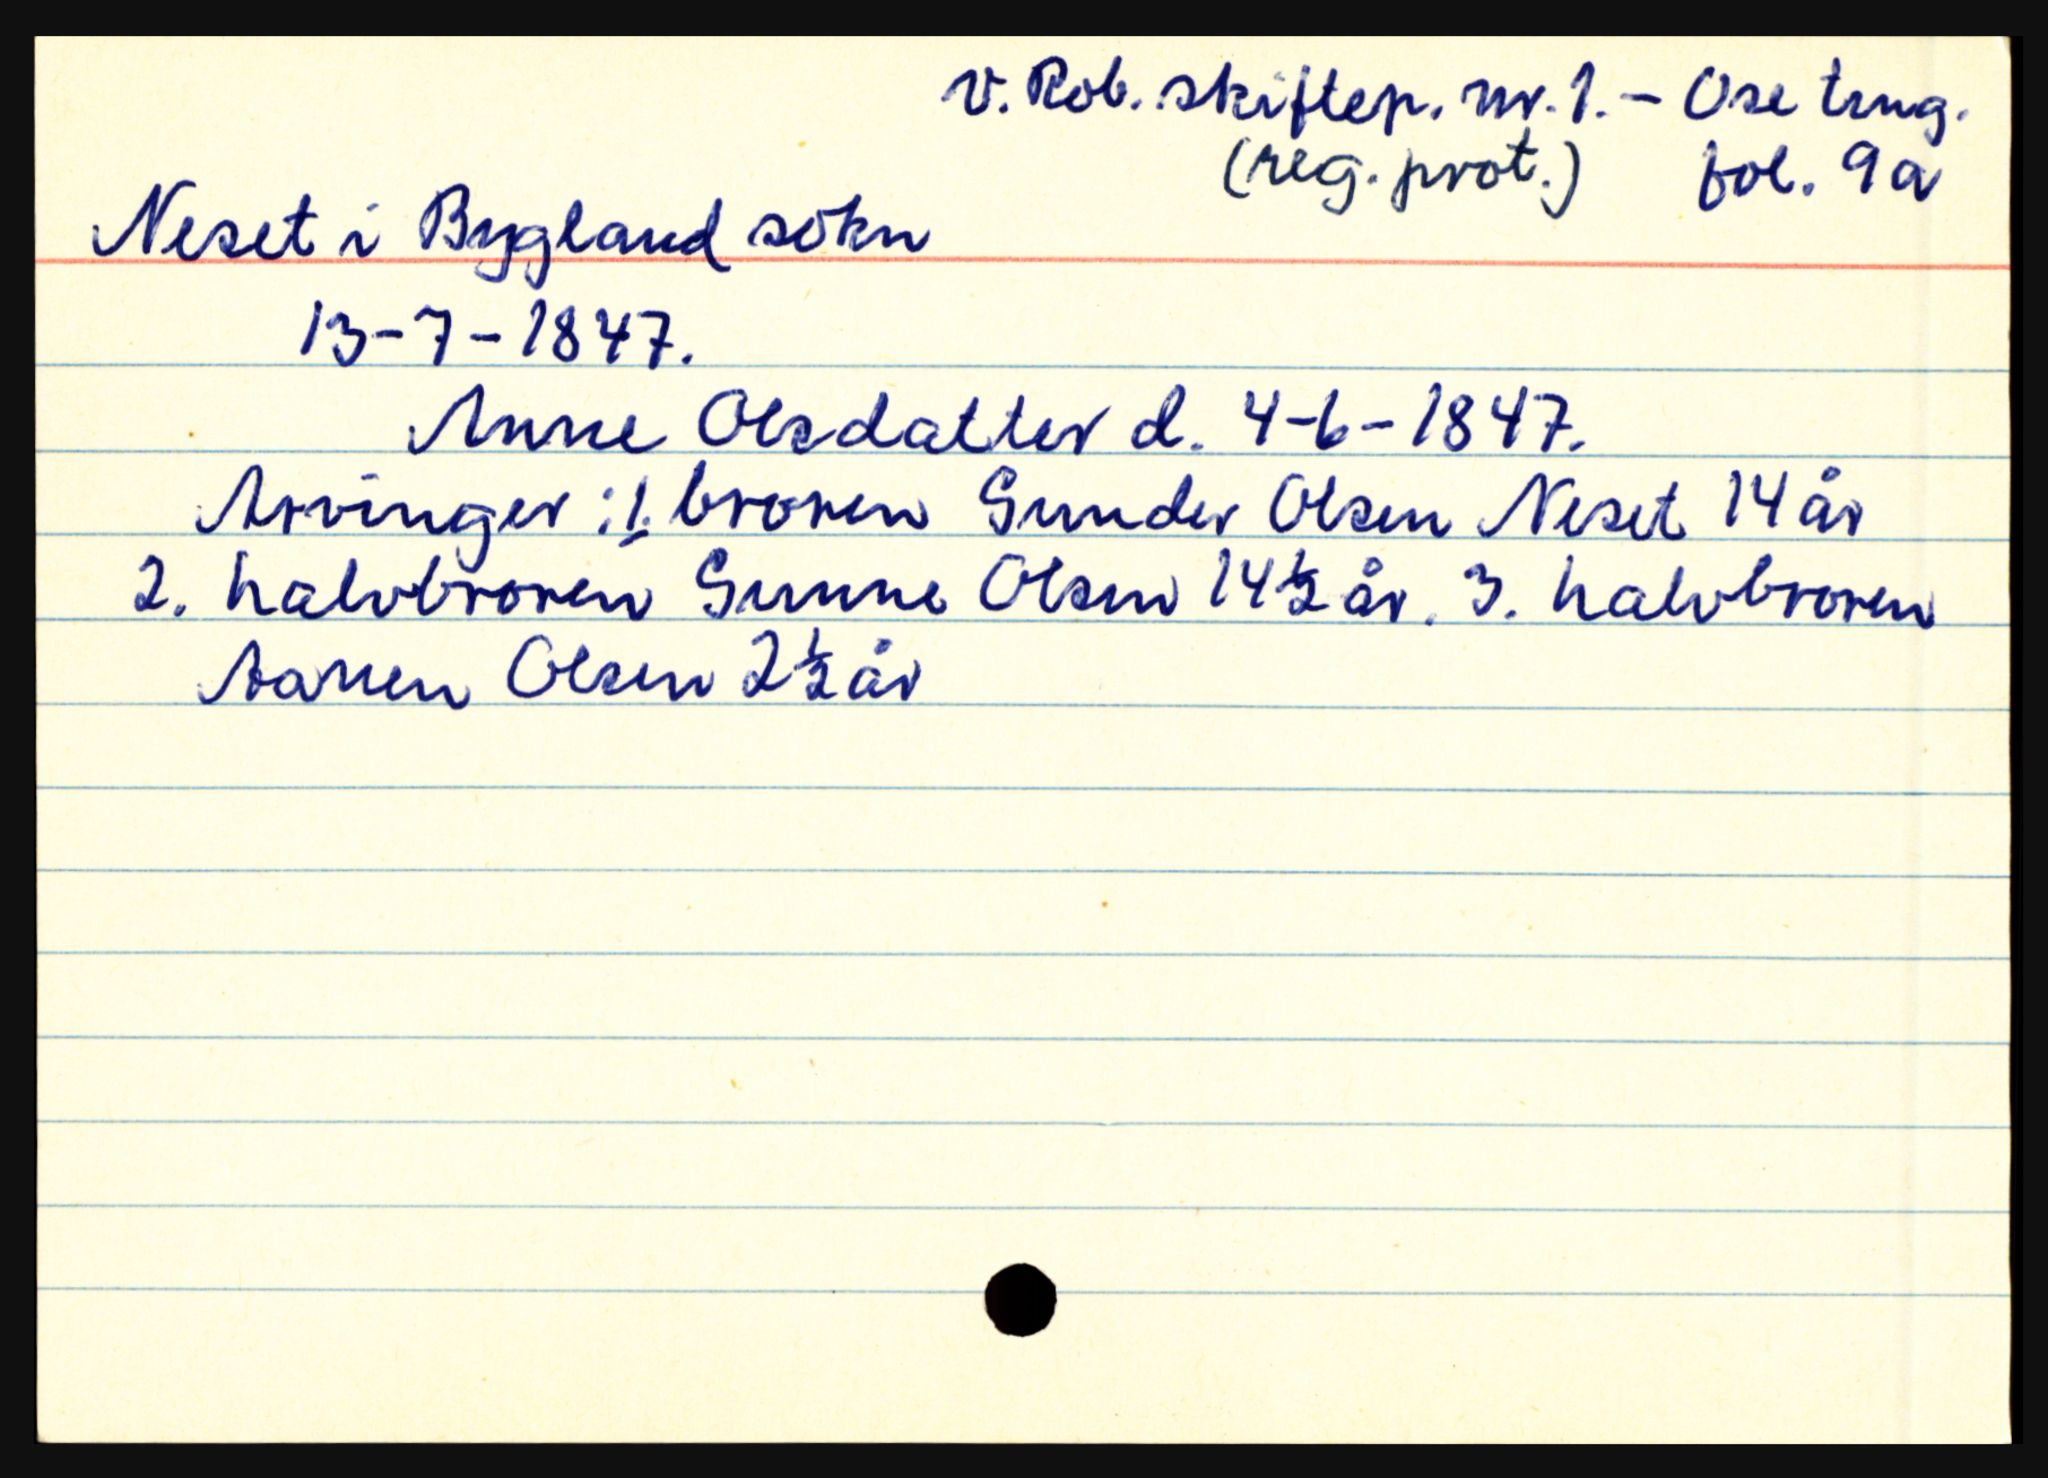 v. Rob. skiftep. nr. 1. - Ose tng.
(reg. prot.) fol. 9a
Neset i Bygland sokn
13-7-1847.
Anne Olsdatter d. 4-6-1847.
Arvinger: 1. broren Gunder Olsen Neset 14 år
2. halvbroren Gunne Olsen 14½ år. 3. halvbroren
Aanen Olsen 2½ år